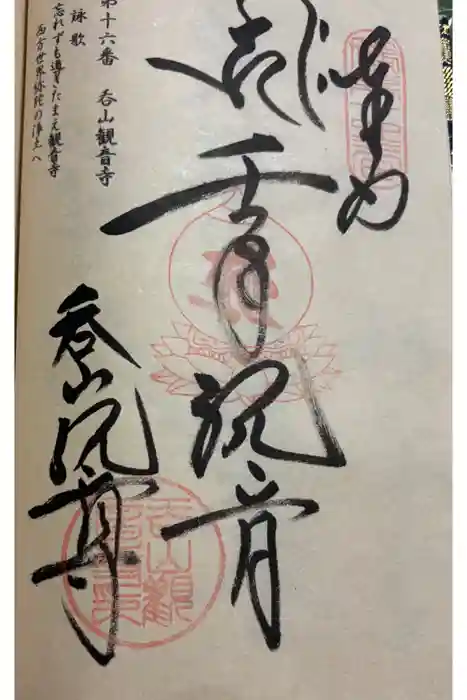 千手観音
第十六番 呑山観音寺
詠歌
忘れずも導きたまえ観音寺
西方世界弥陀の浄土へ
呑山観音寺